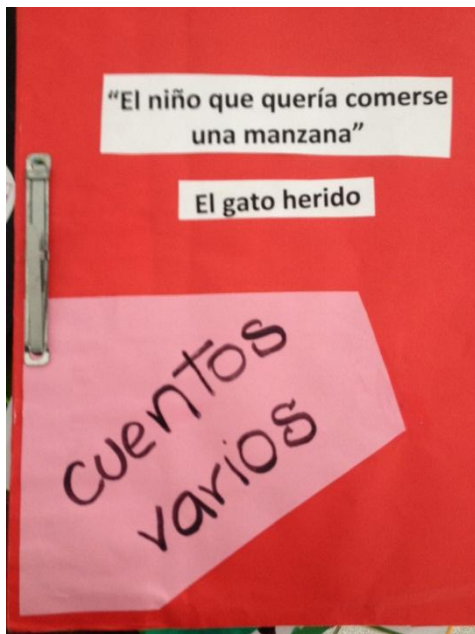 “El niño que quería comerse
una manzana”
El gato herido
cuentos
varios